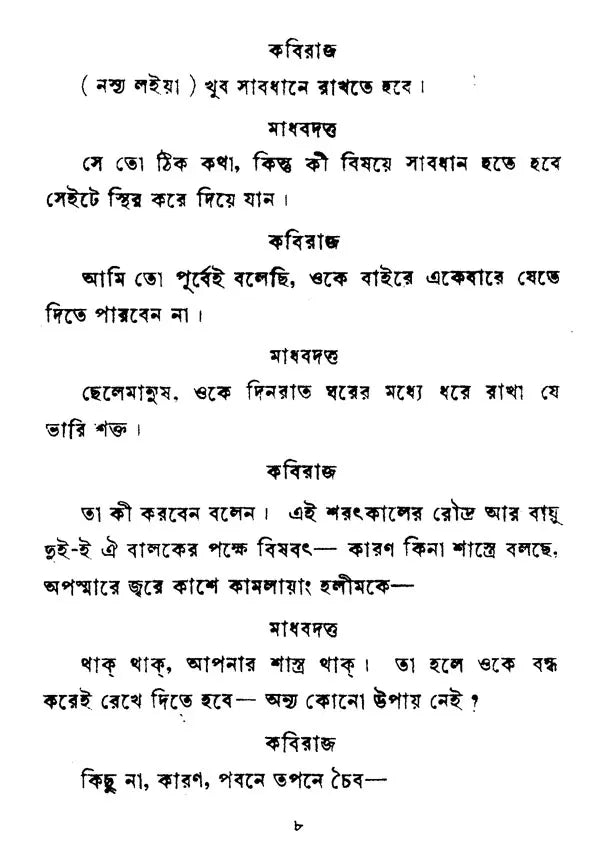 কবিরাজ
( নস্য লইয়া ) খুব সাবধানে রাখতে হবে ।
মাধবদত্ত
সে তো ঠিক কথা, কিন্তু কী বিষয়ে সাবধান হতে হবে
সেইটে স্থির করে দিয়ে যান ।
কবিরাজ
আমি তো পূর্বেই বলেছি, ওকে বাইরে একেবারে যেতে
দিতে পারবেন না ।
মাধবদত্ত
ছেলেমানুষ, ওকে দিনরাত ঘরের মধ্যে ধরে রাখা যে
ভারি শক্ত ।
কবিরাজ
তা কী করবেন বলেন । এই শরৎকালের রৌদ্র আর বায়ু
দুই-ই ঐ বালকের পক্ষে বিষবৎ— কারণ কিনা শাস্ত্রে বলছে,
অপস্মারে জ্বরে কাশে কামলায়াং হলীমকে—
মাধবদত্ত
থাক্ থাক্, আপনার শাস্ত্র থাক্ । তা হলে ওকে বন্ধ
করেই রেখে দিতে হবে— অন্য কোনো উপায় নেই ?
কবিরাজ
কিছু না, কারণ, পবনে তপনে চৈব—
৮